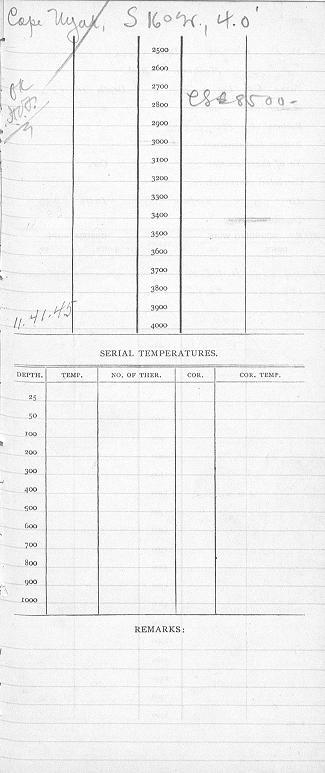 Cape Uyak, S 16° W., 4.0'
2500
2600
2700
OK
2800 CS 8500-
2900
3000
3100
3200
3300
3400
3500
3600
3700
3800
3900
11.41.45
4000
SERIAL TEMPERATURES.
DEPTH. TEMP. NO. OF THER. COR. COR. TEMP.
25
50
100
200
300
400
500
600
700
800
900
1000
REMARKS: